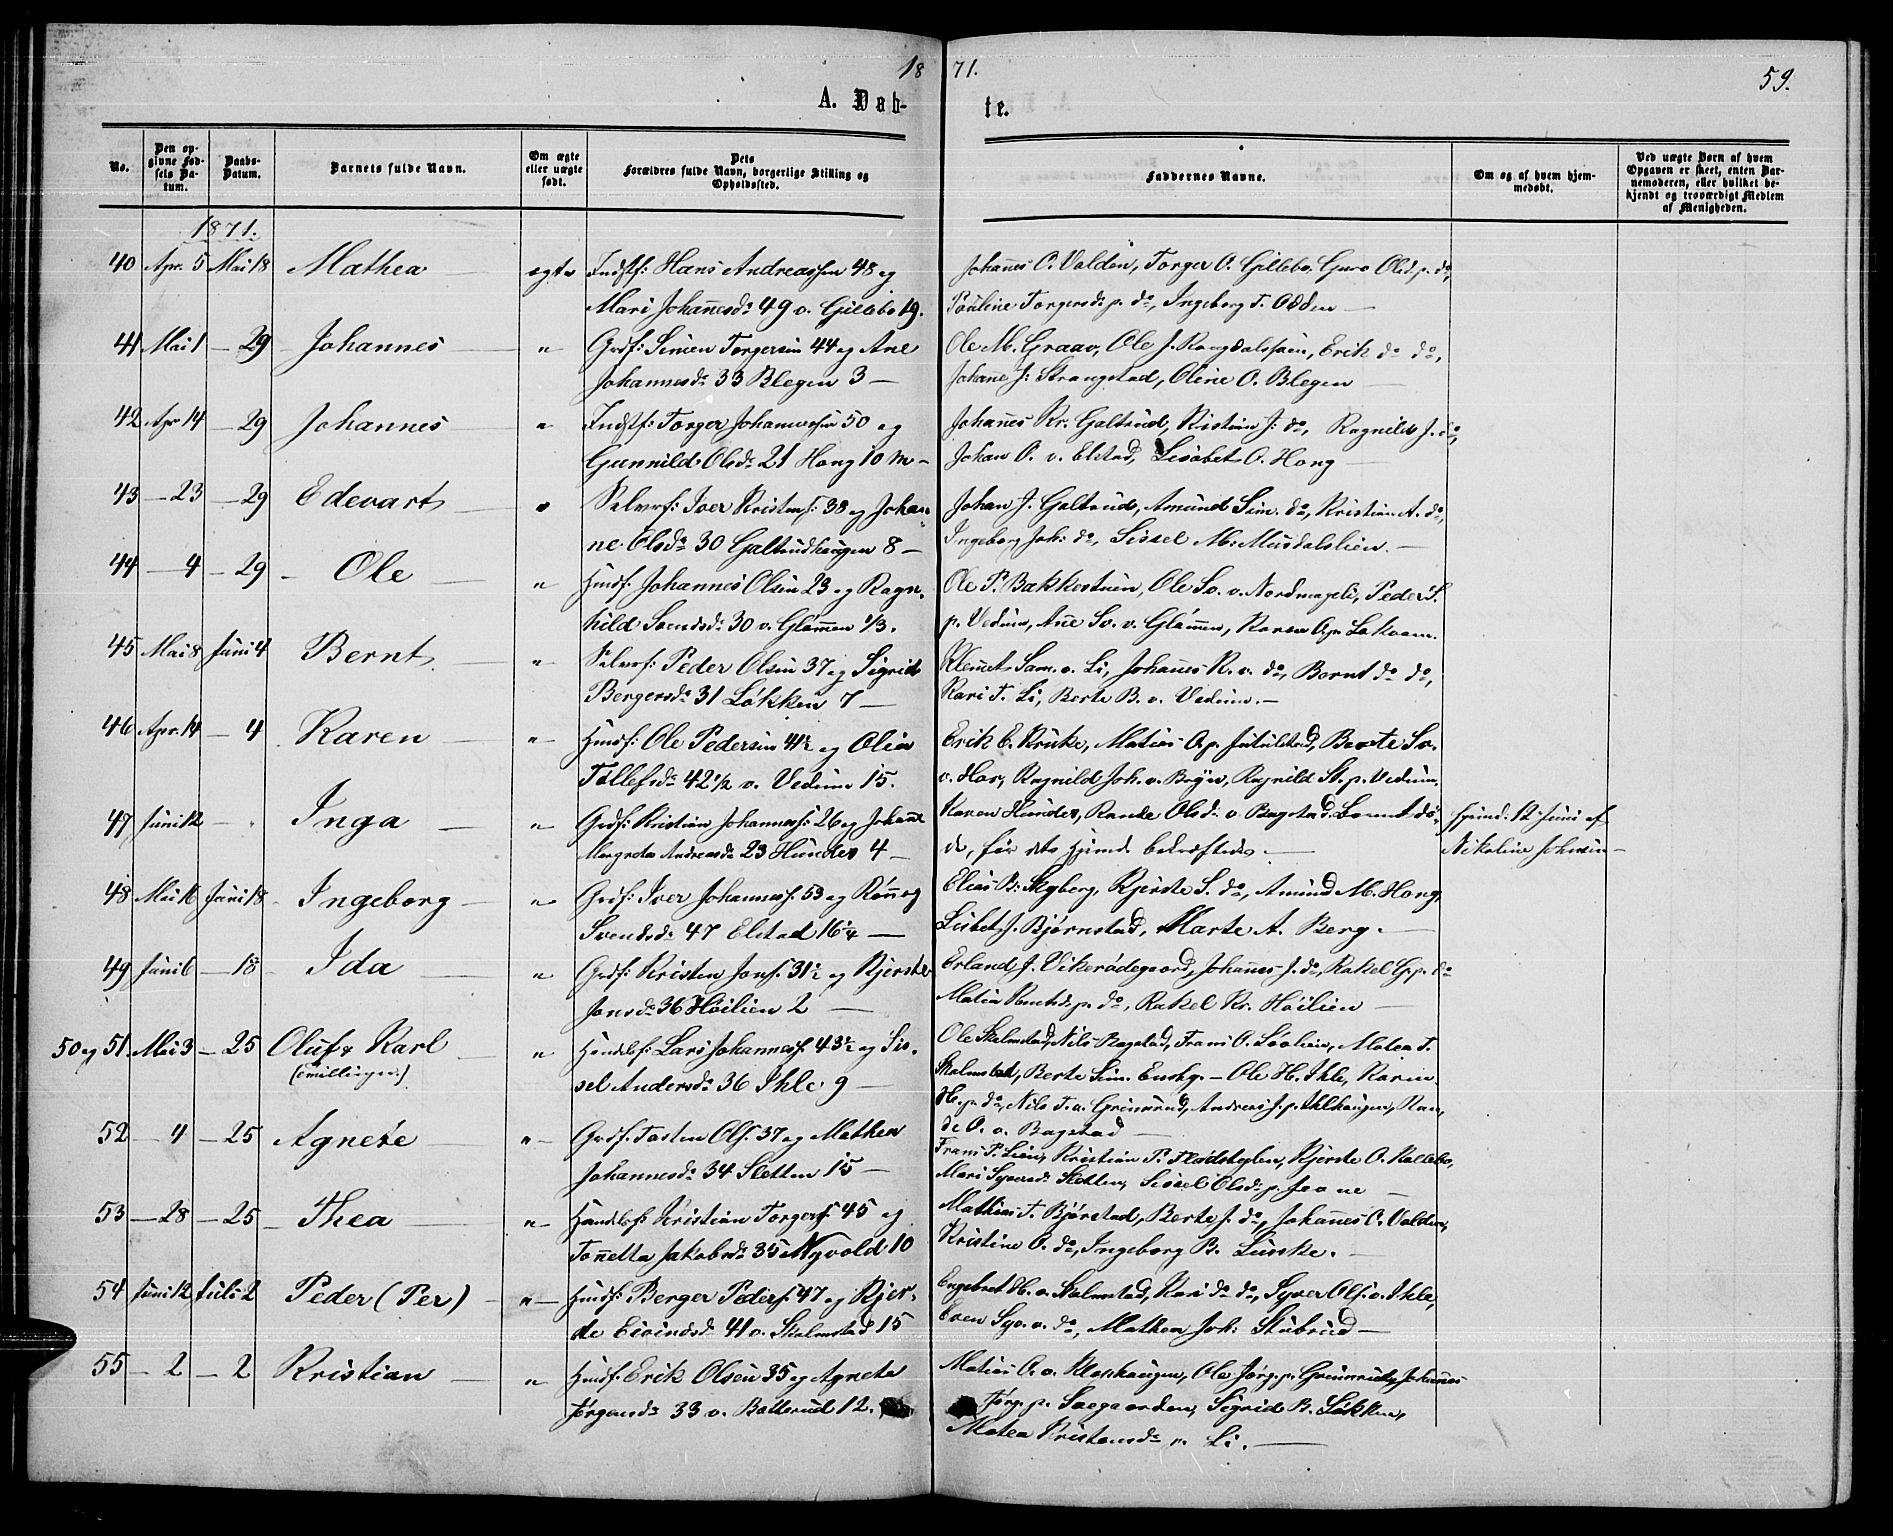 1871.
59.
A. Døb-
te.
No.
Den op-
givne Fød-
sels Da-
tum.
Daabs-
Datum.
Barnets fulde Navn.
Om ægte
eller uægte
født.
Dets
Forældres fulde Navn, borgerlige Stilling og
Opholdssted.
Faddernes Navne.
Om og af hvem hjem-
medøbt.
Ved uægte Børn af hvem
Opgaven er skeet, enten Bar-
nemoderen, eller hvilket be-
kjendt og troværdigt Medlem
af Menigheden.
1871.
40 Apr. 5 Mai 18 Mathea ægte Indstf: Hans Andreassen 48 og
Mari Johannesdr 49 v. Gillebo 19.
Johannes O. Valden, Torger O. Gillebo, Guro Olsd. p. do,
Pauline Torgersd. p. do, Ingeborg T. Odden
41 Mai 1 — 29 Johannes " Grdf: Simen Torgersen 44 og Ane
Johannesdr 33 Blegen 3 —
Ole M. Graav, Ole J. Rongdalshaun, Erik do do,
Johane J. Strangstad, Oline O. Blegen
42 Apr 14 — 29 Johannes " Indstf: Torger Johannessen 50 og
Gunnild Olsdr 21 Hong 10 M —
Johannes Kr. Galtrud, Kistine J. do, Ragnild J. do,
Johan O. v. Elstad, Lisabet O. Hong
43 — 23 — 29 Edevart " Selverf: Iver Kristens: 38 og Johan-
ne Olsdr 30 Galtrudhaugen 8 —
Johan J. Galtrud, Amund Sim. do, Kristian A. do,
Ingeborg Joh. do, Sissel M. Musdalslien. —
44 — 4 — 29 Ole " Husf. Johannes Olsen 23 og Ragn-
hild Svendsdr 30 v. Glømmen 1/3.
Ole P. Bakkestuen, Ole Sv. v. Nordmageli, Peder S.
p. Vedum, Ane Sv. v. Glommen, Karen O. p. Lokvam.
45 Mai 8 Juni 4 Bernt " Selverf: Peder Olsen 37 og Sigrid
Bergersdr 31 Løkken 7 —
Klemet Sam. v. Li, Johannes R. v. do, Bernt do do,
Kari T. Li, Berte B. v. Vedum. —
46 Apr. 14 — 4 Karen " Husf: Ole Pedersen 41½ og Olia
Tollefsdr 42½ v. Vedum 15.
Erik E. Kruke, Matias O. p. Jutulstad, Berte Sv.
v. Hov, Ragnild Joh. v. Bøye, Ragnild St. p. Vedum.
47 Juni 12 — " Inga " Grdf: Kristian Johanness: 26 og Johanne
Margrete Andreasdr 23 Hunder 4 —
Karen Hunder, Rande Olsdr v Bagstad. Barnet dø-
de, før dets Hjemd. bekræftedes. —
Hjemd. 12 Juni af
Nikoline Johnsen —
48 Mai 16 Juni 18 Ingeborg " Grdf: Iver Johanness. 53 og Rønnog
Svendsdr 47 Elstad 16¼ —
Elias B. Skyberg, Kjerste S. do, Amund M. Hong,
Lisbet J. Bjørnstad, Marte A. Berg.
49 Juni 6 — 18 Ida " Grdf: Kristen Jons. 31½ og Kjerste
Jonsdr 36 Høilien 2 —
Erland J. Vikerødegaard, Johannes J. do, Rakel G. p. do
p. do, Rakel Kr. Høilien —
50 og 51 Mai 3 — 25 Oluf & Karl
(Tvillinger) " Handelsf: Lars Johanness. 43½ og Sis-
sel Andersdr 36 Ihle 9 —
Ole Skalmstad, Nils Bagstad, Frans O. Løslien, Matea T.
Skalmstad, Berte Sim. Ensby. — Ole H. Ihle, Karen
H. p. do, Nils T. v. Grimsrud, Andreas J. p. Ihlhaugen, Ran-
de O. v. Bagstad
52 — 4 — 25 Agnete " Grdf. Tosten Ols. 37 og Mathea
Johannesdr 34 Sletten 15 —
Frans P. Lien, Kristian P. Flødstuglen, Kjerste O. Kallebo,
Mari Syversdr Sletten, Sissel Olsdr p.
53 — 28 — 25 Thea " Handelsf: Kristian Torgers. 45 og
Tonetta Jakobsdr 35 Nyvold 10
Mathias T. Bjørstad, Berte J. do, Johannes O. Valden,
Kristine O. do, Ingeborg B. Lunke.
54 Juni 12 Juli 2 Peder (Per) " Husf: Berger Peders. 47 og Kjer-
ste Eivindsd. 41 v. Skalmstad 15
Engebret H. v. Skalmstad, Kari do do, Syver Ols. v. Ihle,
Even Syv. v. do, Mathea Joh. Stubrud —
55 — 2 — 2 Kristian " Husf: Erik Olsen 35 og Agnete
Jørgensdr 33 v. Batterud 12.
Matias O. v. Klevhaugen, Ole Jørg. p. Grimsrud, Johannes
Jørg. p. Søegaarden, Sigrid B. Løkken,
Matea Kristensdr v. Li. —